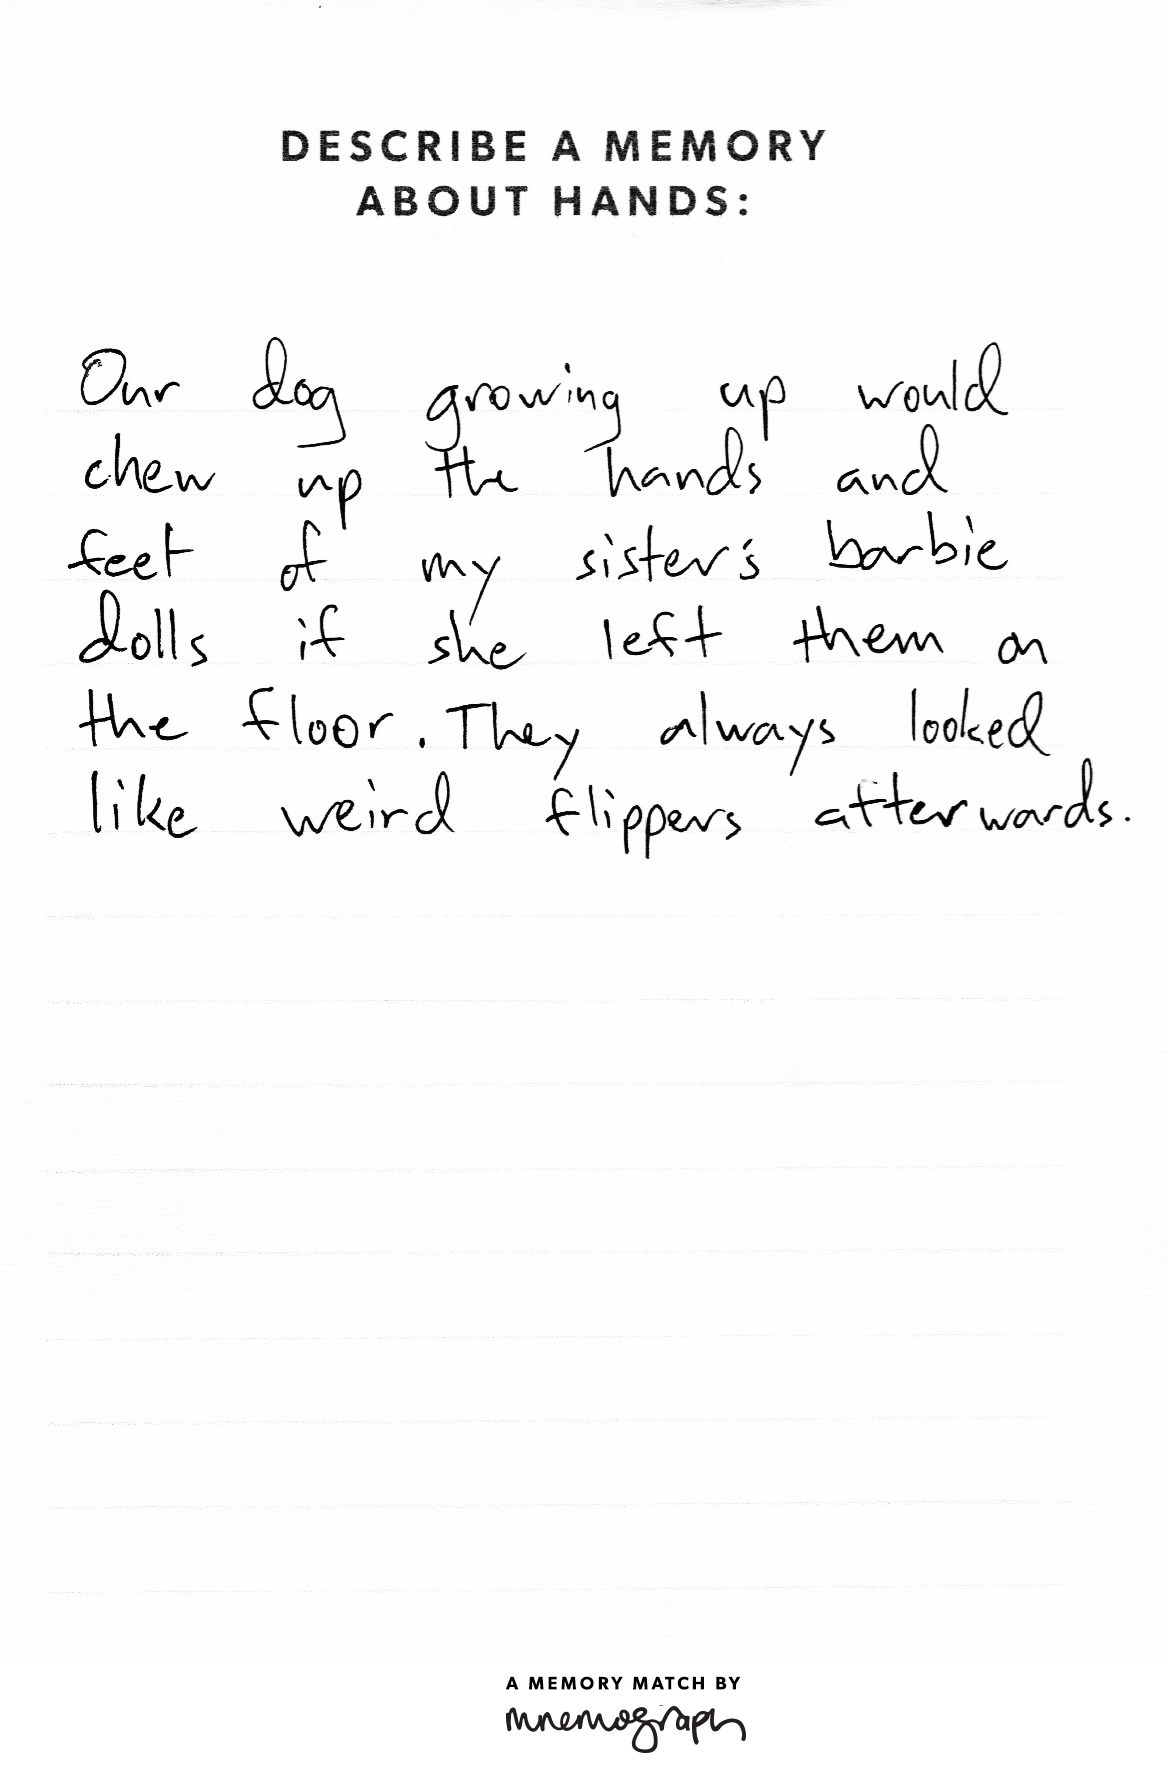 DESCRIBE A MEMORY
ABOUT HANDS:
Our dog growing up would
chew up the hands and
feet of my sister's barbie
dolls if she left them on
the floor. They always looked
like weird flippers afterwards.
A MEMORY MATCH BY
mnemograph